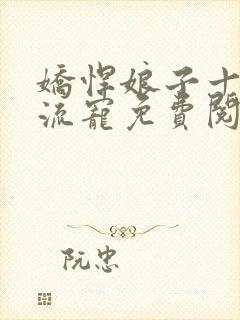 嬌悍娘子十
流寵免費閱
阮忠